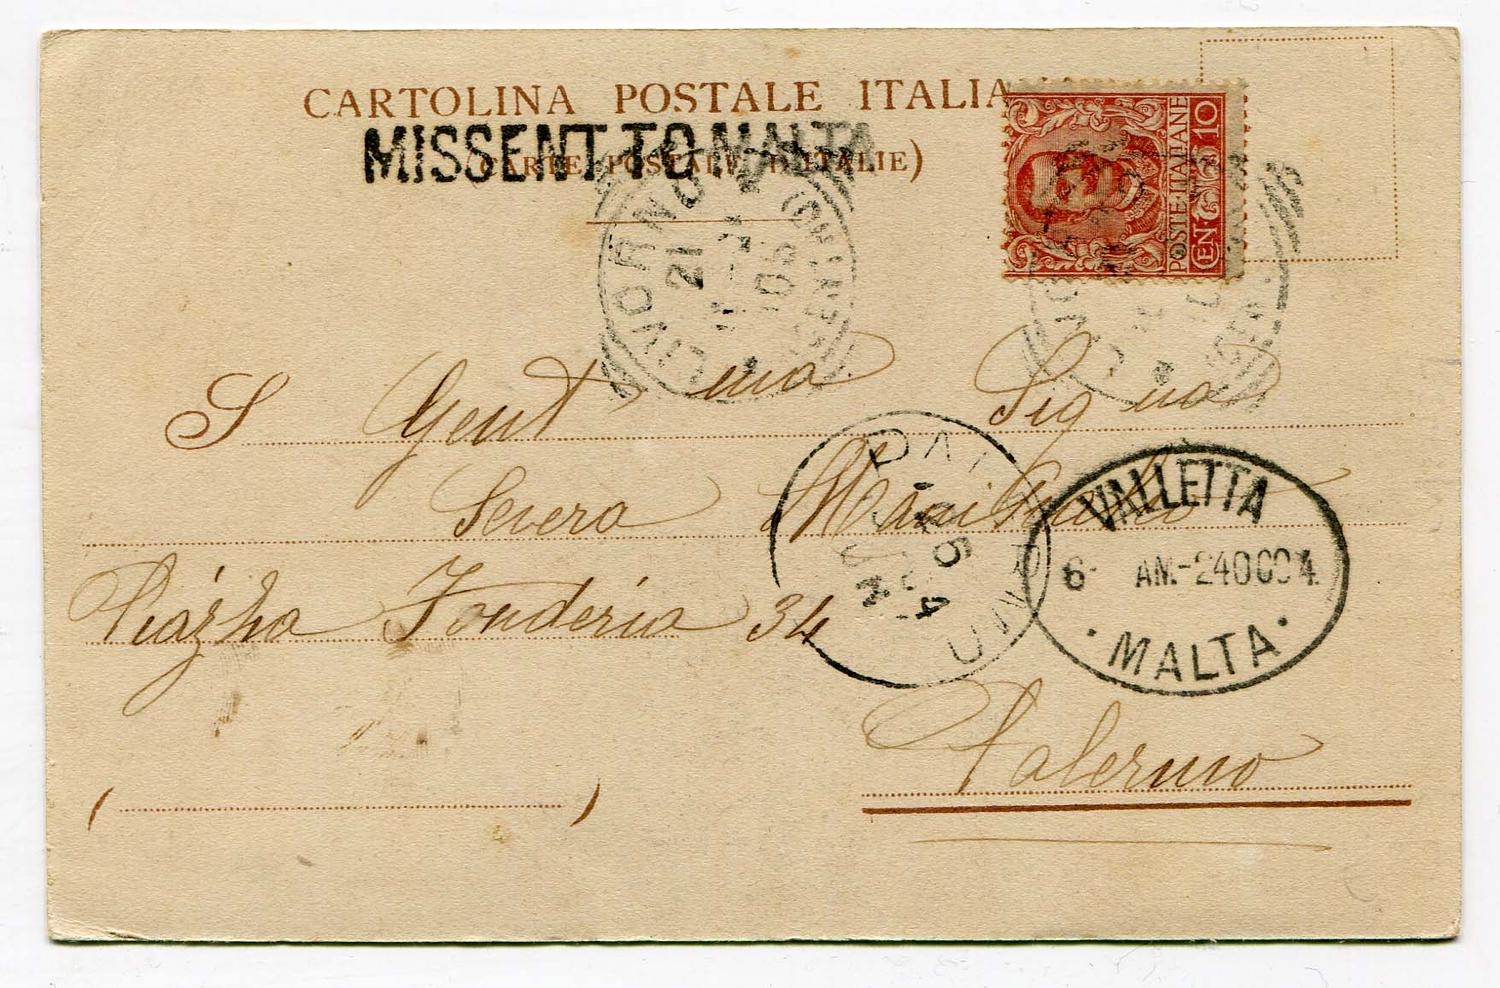 CARTOLINA POSTALE ITALIA
MISSENT TO MALTA
(CARTE POSTALE D'ITALIE)
POSTE·ITALIANE
CEN. 10
LIVORNO
21
S Gent ma Sig na
Severa
Piazza Fonderia 34
Palermo
VALLETTA
6- AM.-24OC04
·MALTA·